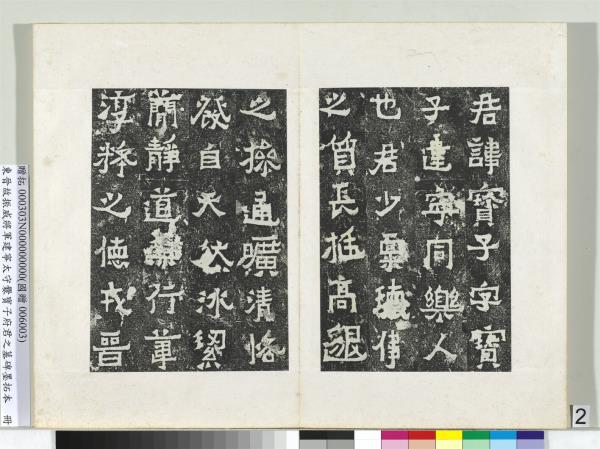 君諱寶子字寶
子建寧同樂人
也君少稟瓌偉
之質長挺高邈
之操通曠清恪
發自天然冰絜
簡靜道兼行葦
淳粹之德戎晉
贈拓 000303N000000000(國贈 006003)
東晉故振威將軍建寧太守爨寶子府君之墓碑墨拓本 冊
2